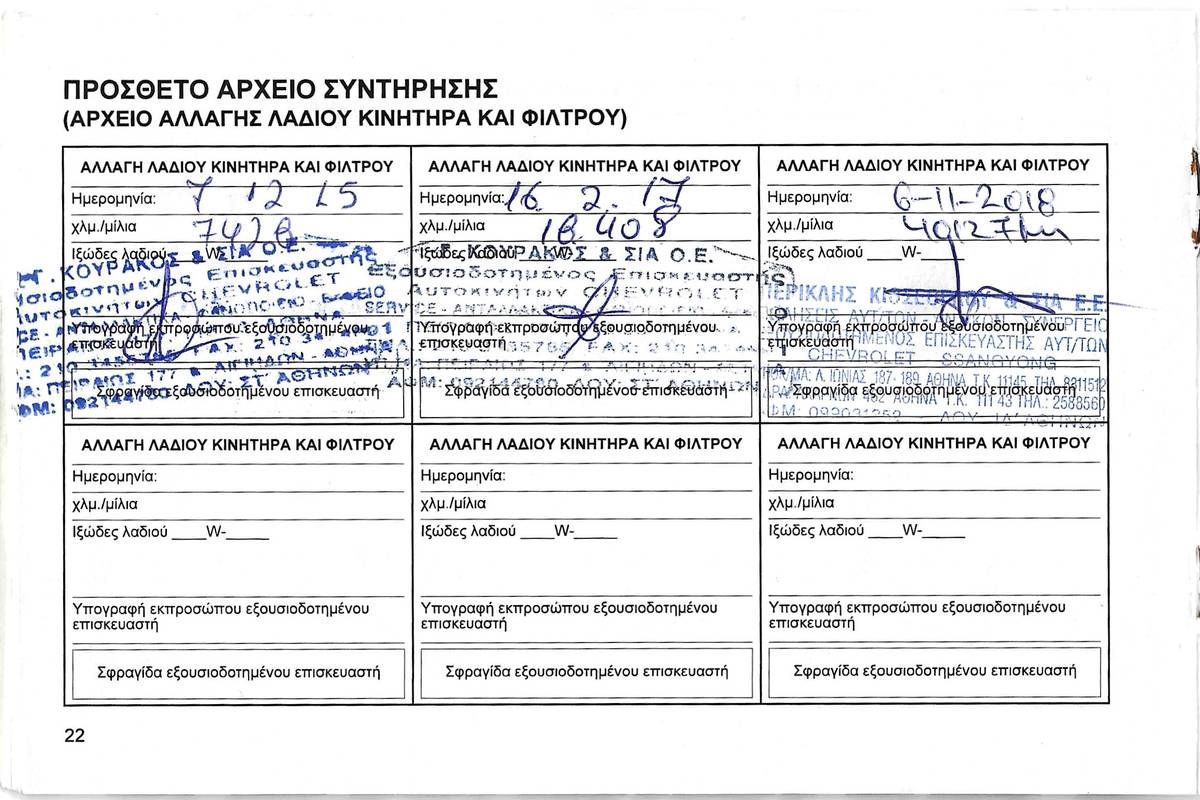 ΠΡΟΣΘΕΤΟ ΑΡΧΕΙΟ ΣΥΝΤΗΡΗΣΗΣ
(ΑΡΧΕΙΟ ΑΛΛΑΓΗΣ ΛΑΔΙΟΥ ΚΙΝΗΤΗΡΑ ΚΑΙ ΦΙΛΤΡΟΥ)
ΑΛΛΑΓΗ ΛΑΔΙΟΥ ΚΙΝΗΤΗΡΑ ΚΑΙ ΦΙΛΤΡΟΥ
Ημερομηνία: 7 12 15
χλμ./μίλια
Ιξώδες λαδιού ____W-_____
Γ. ΚΟΥΡΑΚΟΣ & ΣΙΑ Ο.Ε.
Επισκευαστής
Αυτοκινήτων CHEVROLET
Υπογραφή εκπροσώπου εξουσιοδοτημένου
επισκευαστή
ΠΕΙΡΑΙΩΣ 177 & ΑΙΓΗΙΔΩΝ - ΑΘΗΝΑ
ΔΟΥ: ΣΤ' ΑΘΗΝΩΝ
Σφραγίδα εξουσιοδοτημένου επισκευαστή
ΑΛΛΑΓΗ ΛΑΔΙΟΥ ΚΙΝΗΤΗΡΑ ΚΑΙ ΦΙΛΤΡΟΥ
Ημερομηνία: 16. 2. 17
χλμ./μίλια 18.408
Ιξώδες λαδιού ____W-_____
Γ. ΚΟΥΡΑΚΟΣ & ΣΙΑ Ο.Ε.
Εξουσιοδοτημένος Επισκευαστής
Αυτοκινήτων CHEVROLET
Υπογραφή εκπροσώπου εξουσιοδοτημένου
επισκευαστή
ΑΦΜ: 092144760 ΔΟΥ: ΣΤ' ΑΘΗΝΩΝ
Σφραγίδα εξουσιοδοτημένου επισκευαστή
ΑΛΛΑΓΗ ΛΑΔΙΟΥ ΚΙΝΗΤΗΡΑ ΚΑΙ ΦΙΛΤΡΟΥ
Ημερομηνία: 6-11-2018
χλμ./μίλια 40127km
Ιξώδες λαδιού ____W-_____
ΠΕΡΙΚΛΗΣ & ΣΙΑ Ε.Ε.
ΣΥΝΕΡΓΕΙΟ
Υπογραφή εκπροσώπου εξουσιοδοτημένου
επισκευαστή
ΕΠΙΣΚΕΥΑΣΤΗΣ ΑΥΤ/ΤΩΝ
CHEVROLET SSANGYONG
Λ. ΙΩΝΙΑΣ 187-189, ΑΘΗΝΑ Τ.Κ. 11145, ΤΗΛ. 8311512
ΑΘΗΝΑ Τ.Κ. 111 43 ΤΗΛ.: 2588560
Σφραγίδα εξουσιοδοτημένου επισκευαστή
ΑΛΛΑΓΗ ΛΑΔΙΟΥ ΚΙΝΗΤΗΡΑ ΚΑΙ ΦΙΛΤΡΟΥ
Ημερομηνία:
χλμ./μίλια
Ιξώδες λαδιού ____W-_____
Υπογραφή εκπροσώπου εξουσιοδοτημένου
επισκευαστή
Σφραγίδα εξουσιοδοτημένου επισκευαστή
ΑΛΛΑΓΗ ΛΑΔΙΟΥ ΚΙΝΗΤΗΡΑ ΚΑΙ ΦΙΛΤΡΟΥ
Ημερομηνία:
χλμ./μίλια
Ιξώδες λαδιού ____W-_____
Υπογραφή εκπροσώπου εξουσιοδοτημένου
επισκευαστή
Σφραγίδα εξουσιοδοτημένου επισκευαστή
ΑΛΛΑΓΗ ΛΑΔΙΟΥ ΚΙΝΗΤΗΡΑ ΚΑΙ ΦΙΛΤΡΟΥ
Ημερομηνία:
χλμ./μίλια
Ιξώδες λαδιού ____W-_____
Υπογραφή εκπροσώπου εξουσιοδοτημένου
επισκευαστή
Σφραγίδα εξουσιοδοτημένου επισκευαστή
22